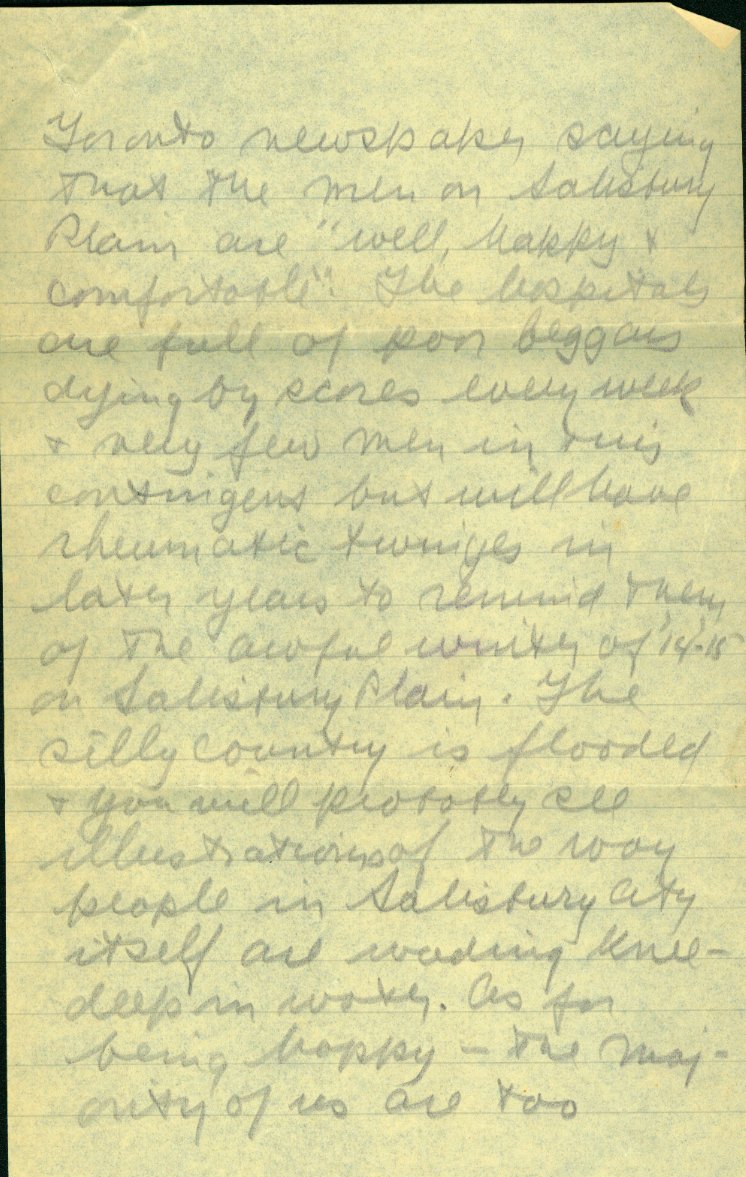 Toronto newspaper saying
that the men on Salisbury
Plain are "well, happy &
comfortable". The hospitals
are full of poor beggars
dying by scores every week
& very few men in this
contingent but will have
rheumatic twinges in
later years to remind them
of the awful winter of '14-'15
on Salisbury Plain. The
silly country is flooded
& you will probably see
illustrations of the way
people in Salisbury City
itself are wading knee-
deep in water. As for
being happy – the maj-
ority of us are too